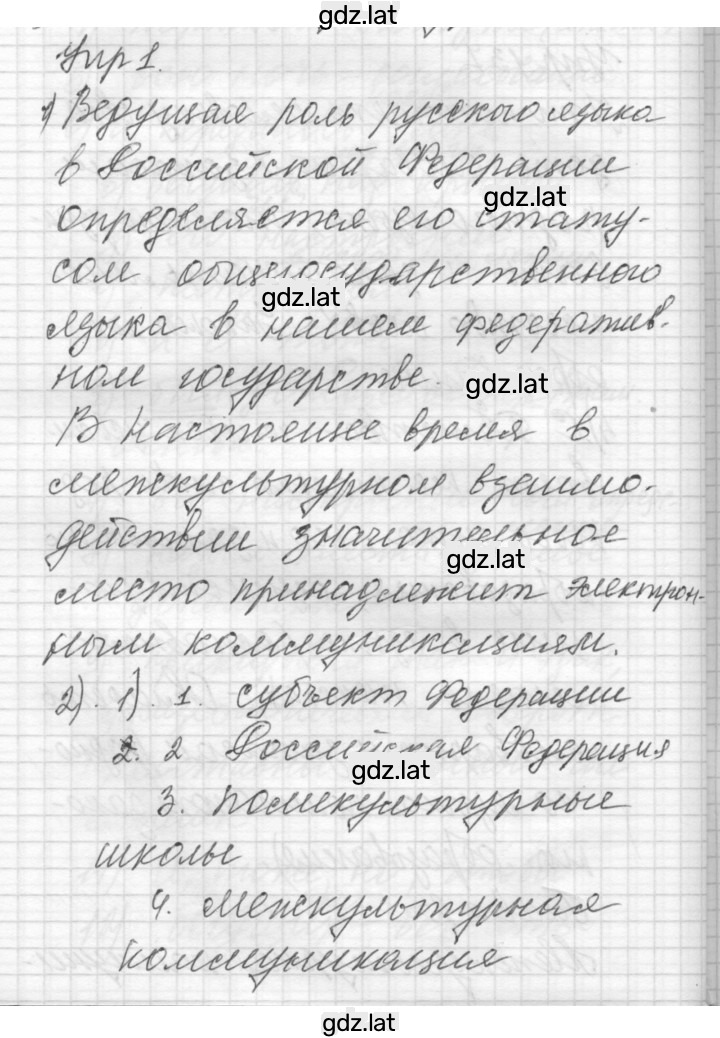 gdz.lat
Упр 1.
1) Ведущая роль русского языка
в Российской Федерации
gdz.lat
определяется его стату-
сом общегосударственного
gdz.lat
языка в нашем федератив-
ном государстве.
gdz.lat
В настоящее время в
межкультурном взаимо-
действии значительное
gdz.lat
место принадлежит электрон-
ным коммуникациям.
2). 1). 1. субъект Федерации
2. 2 Российская Федерация
gdz.lat
3. поликультурные
школы
4. межкультурная
коммуникация
gdz.lat